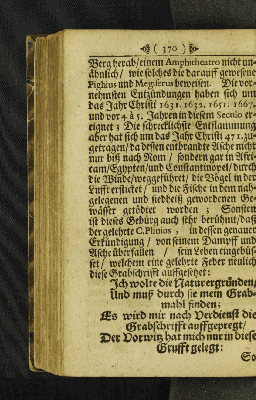 ( 370 )
Berg herab / einem Amphitheatro nicht un-
ähnlich / wie solches die darauff gewesene
Pighius und Megiserus beweisen. Die vor-
nehmsten Entzündungen haben sich um
das Jahr Christi 1631. 1632. 1651. 1667.
und vor 4 à 5. Jahren in diesem Seculo er-
eignet; Die schrecklichste Entflammung
aber hat sich um das Jahr Christi 471. zu-
getragen / da dessen entbrandte Asche nicht
nur biß nach Rom / sondern gar in Afri-
cam / Egypten / und Constantinopel / durch
die Winde / weggeführet / die Vögel in der
Lufft ersticket / und die Fische in dem nah-
gelegenen und siedheiß gewordenen Ge-
wässer getödtet worden; Sonsten
ist dieses Gebürg auch sehr berühmt / daß
der gelehrte C. Plinius, in dessen genauer
Erkündigung / von seinem Dampff und
Asche überfallen / sein Leben eingebüs-
set / welchem eine gelehrte Feder neulich
diese Grabschrifft auffgesetzet:
Ich wolte die Naturergründen /
Und muß durch sie mein Grab-
mahl finden;
Es wird mir nach Verdienst die
Grabschrifft auffgepregt /
Der Vorwitz hat mich nur in diese
Grufft gelegt:
So